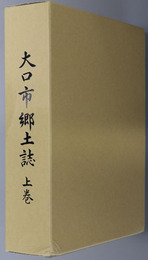 大口市郷土誌 上巻